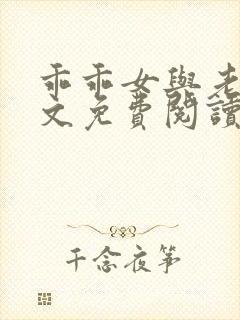 乖乖女與老
文免費閱讀
千念夜箏